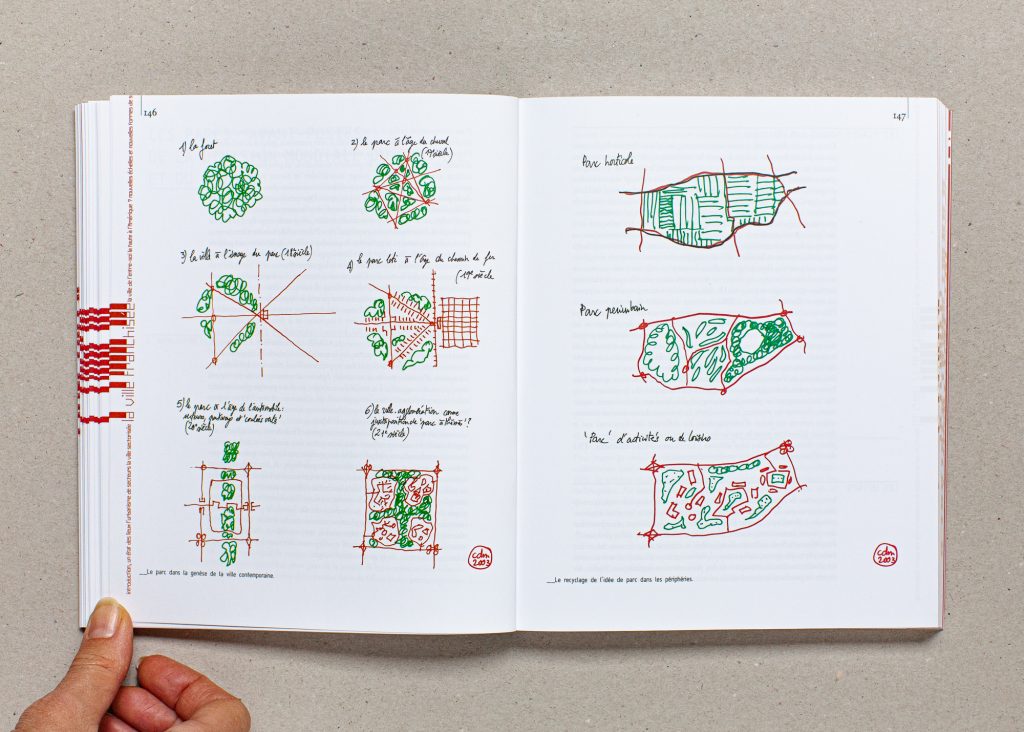 146
1) la forêt
2) le parc à l'âge du cheval
(17e siècle)
3) la ville à l'image du parc (18e siècle)
4) le parc loti à l'âge du chemin de fer
(19e siècle
5) le parc à l'âge de l'automobile :
secteurs, parkways et 'coulées vertes'
(20e siècle)
6) la ville-agglomération comme
juxtaposition de 'parc à thèmes' ?
(21e siècle)
cdm
2003
__Le parc dans la genèse de la ville contemporaine.
introduction, un état des lieux l'urbanisme de secteurs la ville sectorisée la ville franchisée la ville de l'entre-soi la faute à l'Amérique ? nouvelles échelles et nouvelles formes de s
147
Parc horticole
Parc périurbain
'Parc' d'activités ou de loisirs
cdm
2003
__Le recyclage de l'idée de parc dans les périphéries.